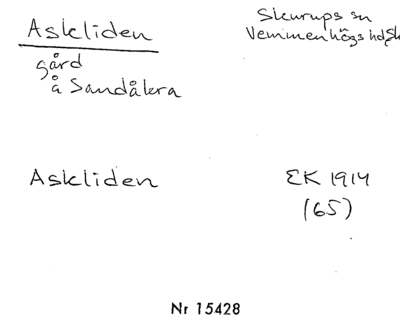 Askliden
Skurups sn
Vemmenhögs hd, Sk
gård
å Sandåkra
Askliden
EK 1914
(65)
Nr 15428